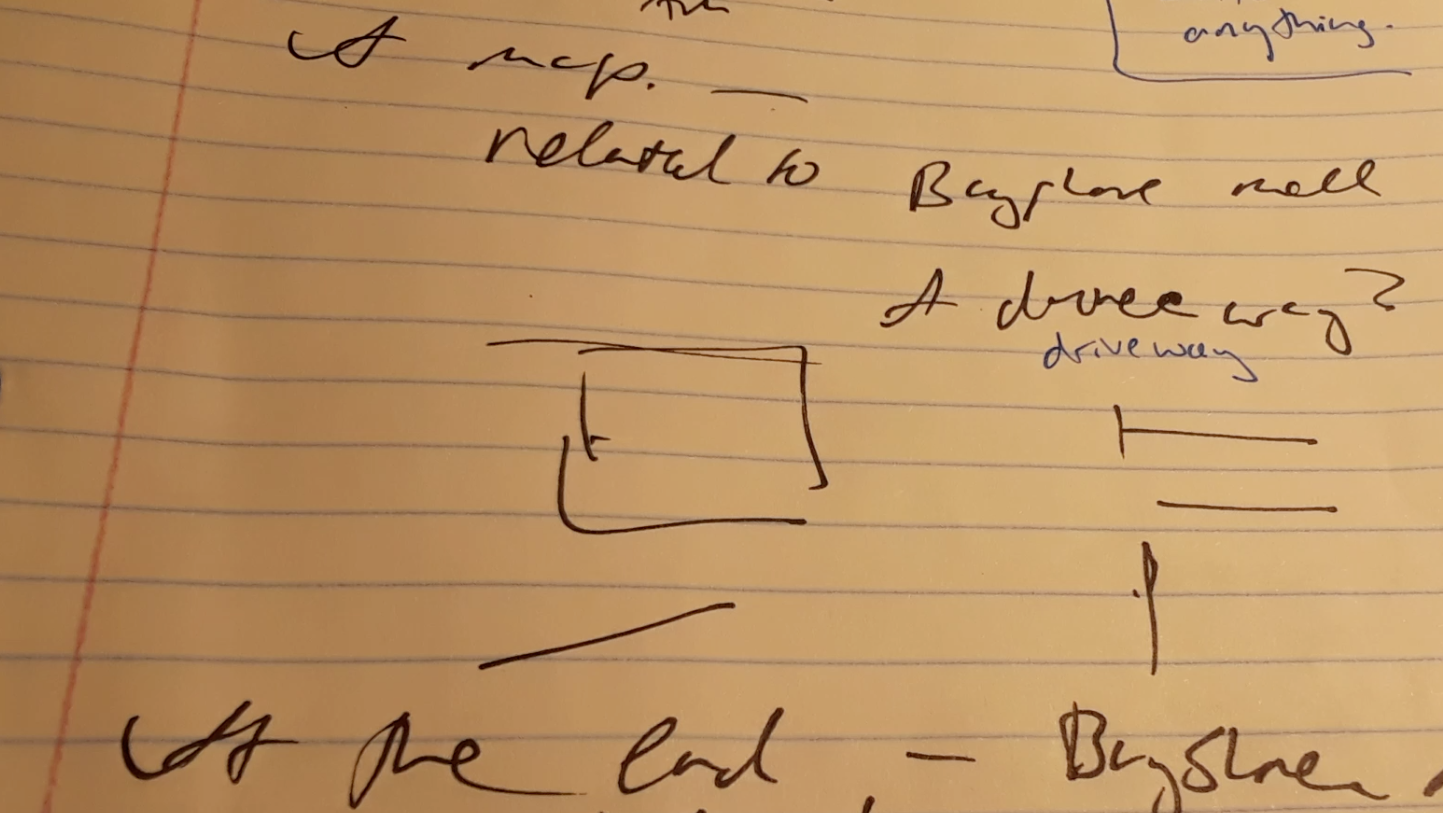 anything.
A map. —
related to Bayshore mall
A drivee way?
driveway
At the end — Bayshore